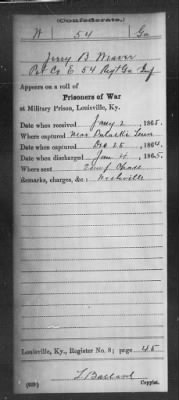 (Confederate.)
W 54 Ga
Jerry B Weaver
Pvt Co E 54 Regt Ga Inf
Appears on a roll of
Prisoners of War
at Military Prison, Louisville, Ky.
Date when received Jany 2, 1865.
Where captured Near Pulaski Tenn
Date when captured Dec 25, 1864.
Date when discharged Jan 4, 1865.
Where sent Camp Chase
Remarks, charges, &c: Nashville
Louisville, Ky., Register No. 8; page 45
Copyist.